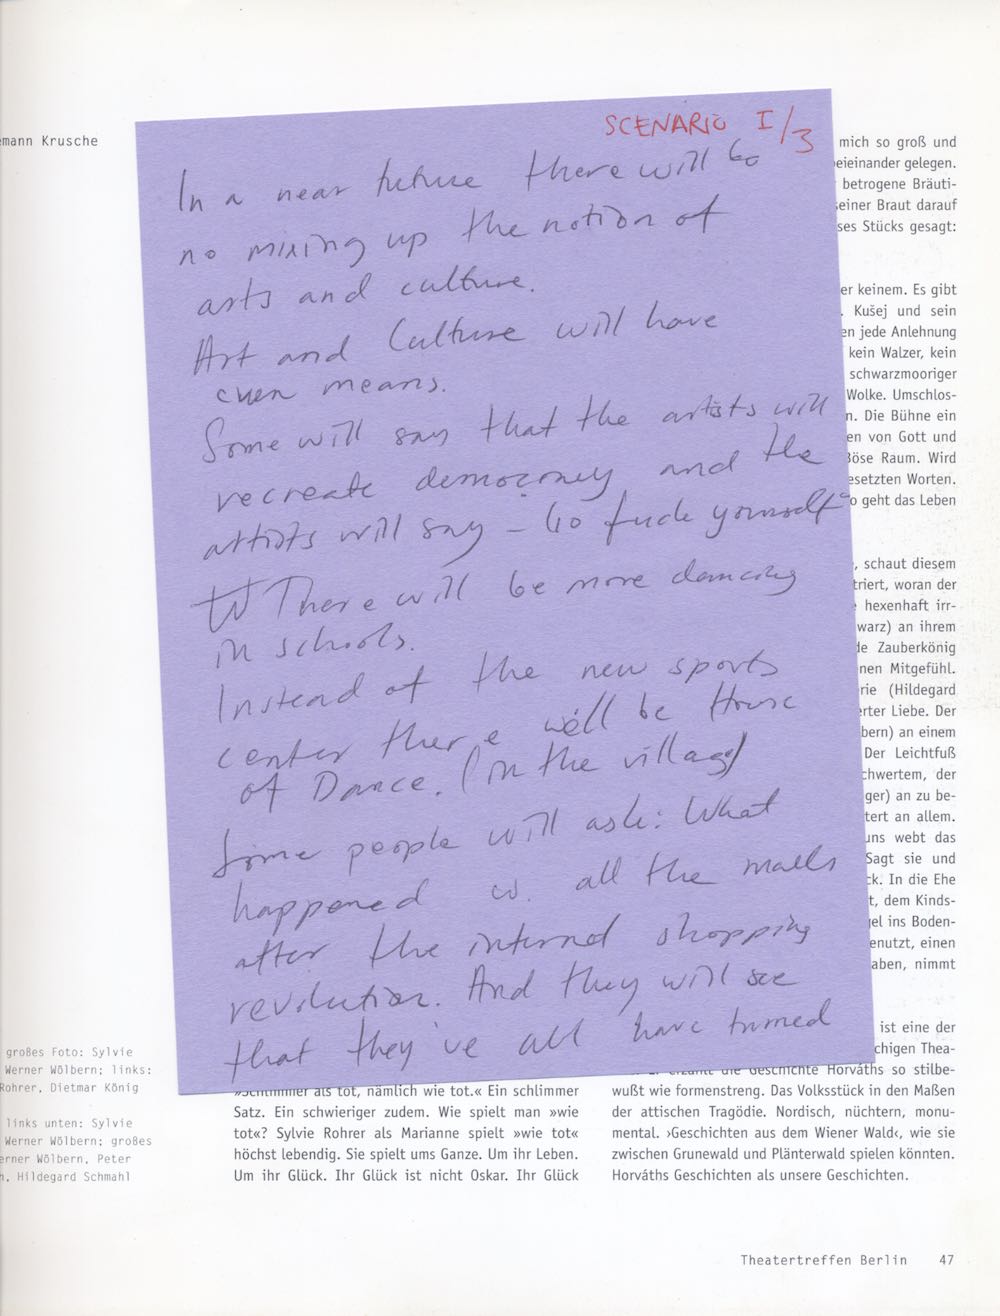 mann Krusche
SCENARIO I/3
In a near future there will be
no mixing up the notion of
arts and culture.
Art and Culture will have
even means.
Some will say that the artists will
recreate democracy and the
artists will say – Go fuck yourself
There will be more dancing
in schools.
Instead of the new sports
center there will be House
of Dance. (in the village)
Some people will ask: What
happened w. all the malls
after the internet shopping
revolution. And they will see
that they've all have turned
mich so groß und
beieinander gelegen.
betrogene Bräuti-
seiner Braut darauf
ses Stücks gesagt:
er keinem. Es gibt
. Kušej und sein
en jede Anlehnung
kein Walzer, kein
schwarzmooriger
Wolke. Umschlos-
n. Die Bühne ein
en von Gott und
Böse Raum. Wird
esetzten Worten.
o geht das Leben
, schaut diesem
triert, woran der
hexenhaft irr-
warz) an ihrem
de Zauberkönig
nen Mitgefühl.
rie (Hildegard
erter Liebe. Der
bern) an einem
Der Leichtfuß
chwertem, der
ger) an zu be-
tert an allem.
uns webt das
Sagt sie und
ck. In die Ehe
t, dem Kinds-
gel ins Boden-
enutzt, einen
aben, nimmt
ist eine der
chigen Thea-
erzählt die Geschichte Horváths so stilbe-
wußt wie formenstreng. Das Volksstück in den Maßen
der attischen Tragödie. Nordisch, nüchtern, monu-
mental. ›Geschichten aus dem Wiener Wald‹, wie sie
zwischen Grunewald und Plänterwald spielen könnten.
Horváths Geschichten als unsere Geschichten.
großes Foto: Sylvie
Werner Wölbern; links:
Rohrer, Dietmar König
links unten: Sylvie
Werner Wölbern; großes
erner Wölbern, Peter
n, Hildegard Schmahl
»Schlimmer als tot, nämlich wie tot.« Ein schlimmer
Satz. Ein schwieriger zudem. Wie spielt man »wie
tot«? Sylvie Rohrer als Marianne spielt »wie tot«
höchst lebendig. Sie spielt ums Ganze. Um ihr Leben.
Um ihr Glück. Ihr Glück ist nicht Oskar. Ihr Glück
Theatertreffen Berlin 47